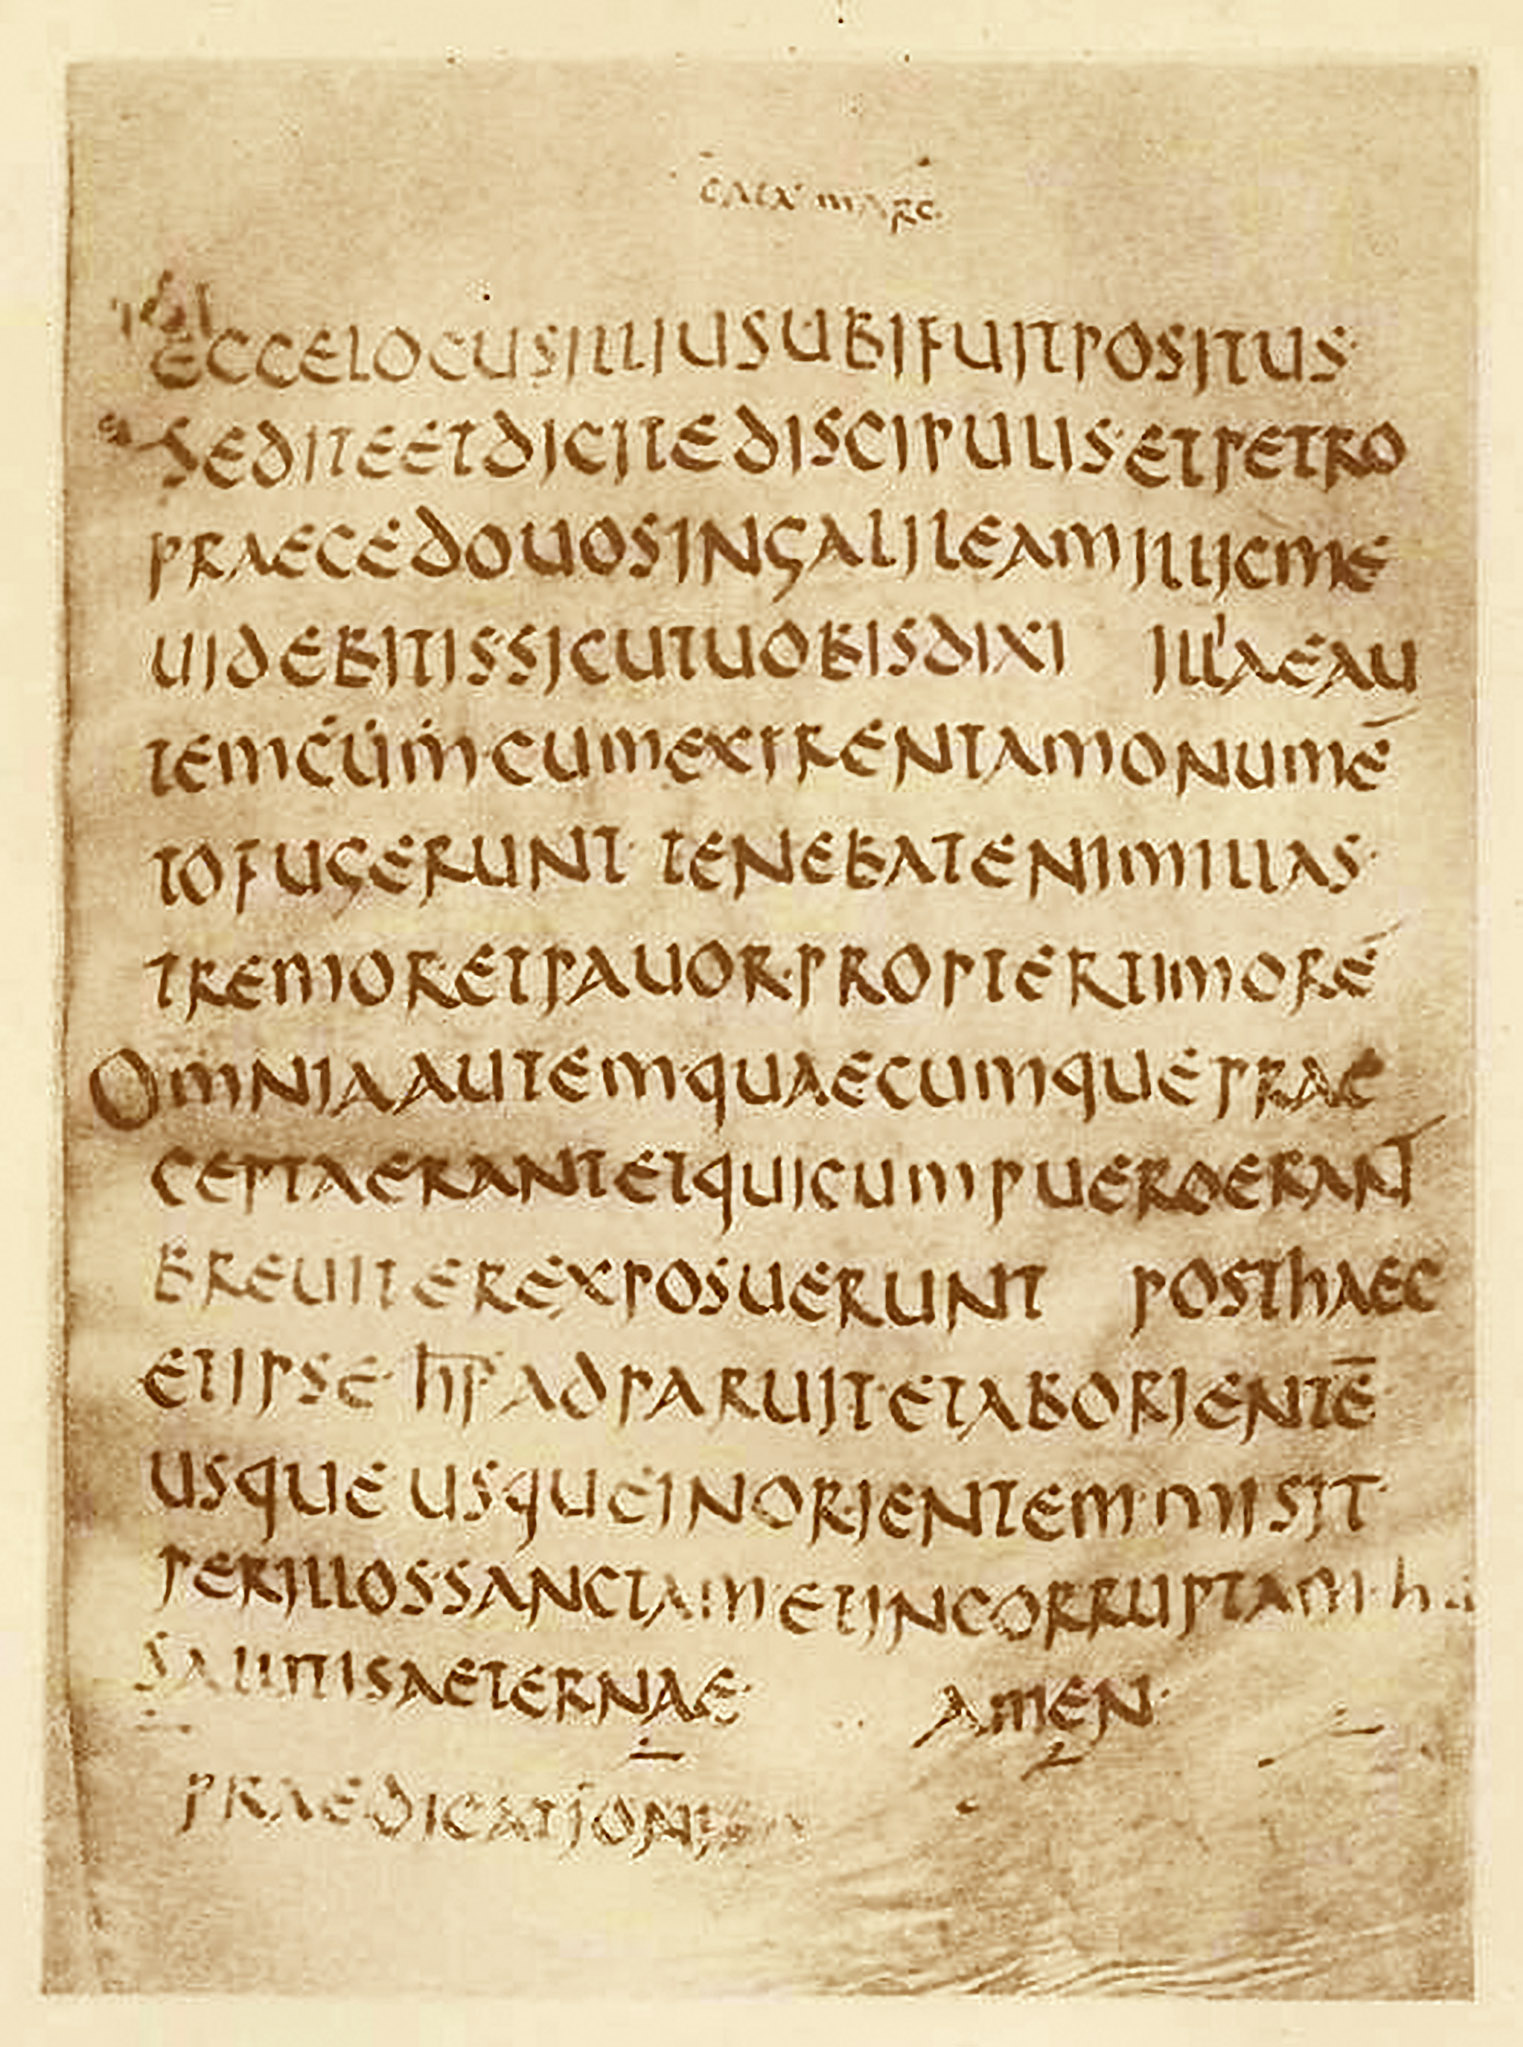 ECCELOCUSILLIUSUBIFUITPOSITUS·
SEDITEETDICITEDISCIPULIS·ETPETRO
PRAECEDOUOSINGALILEAMILLICME
UIDEBITISSICUTUOBISDIXI ILLAEAU
TEMĊU̇Ṁ·CUMEXIRENTAMONUMĒ
TOFUGERUNT· TENEBATENIMILLAS·
TREMORETPAUOR·PROPTERTIMORĒ
OMNIAAUTEMQUAECUMQUEPRAE
CEPTAERANTETQUICUMPUEROERANT
BREUITEREXPOSUERUNT POSTHAEC
ETIPSE· h̅i̅s̅ ADPARUIT·ETABORIENTĒ
USQUE USQUEINORIENTEM·MISIT·
PERILLOS·SANCTAMETINCORRUPTAM·
SALUTISAETERNAE· AMEN·